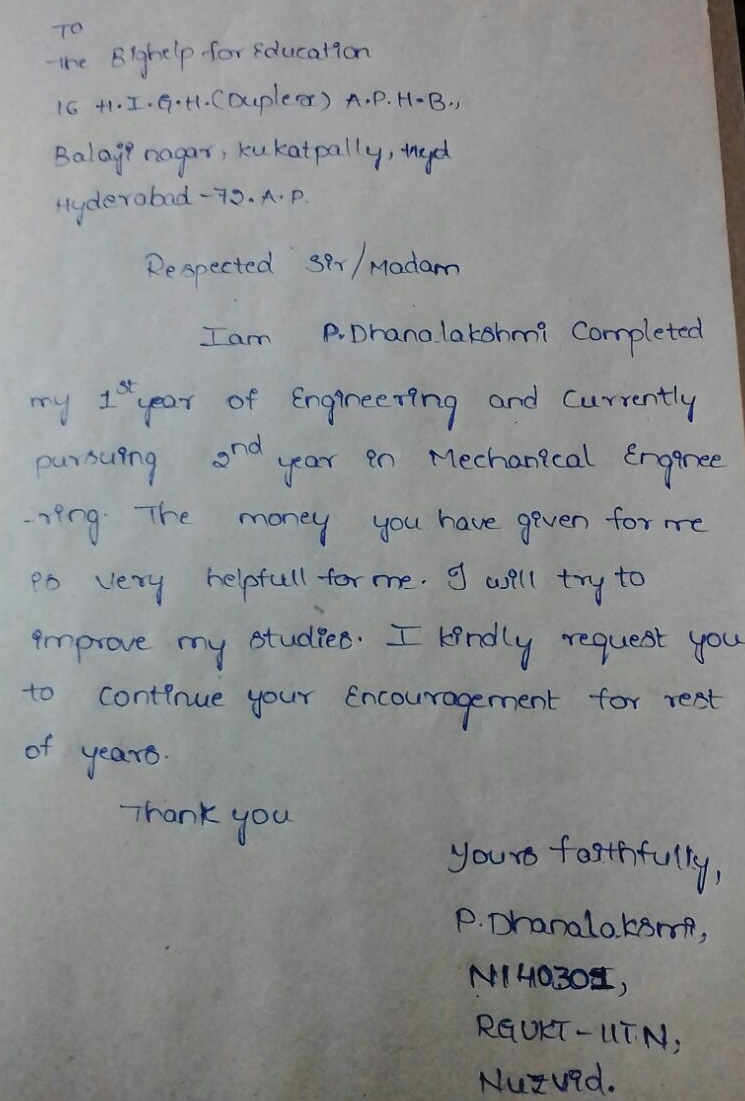 To
The Bighelp for Education
16 H.I.G.H.(Duplex) A.P.H.B.,
Balaji nagar, kukatpally, Hyd
Hyderabad-72. A.P.
Respected Sir/Madam
Iam P.Dhanalakshmi Completed
my 1st year of Engineering and Currently
pursuing 2nd year in Mechanical Enginee
-ring. The money you have given for me
is very helpfull for me. I will try to
improve my studies. I kindly request you
to continue your Encouragement for rest
of years.
Thank you
Yours faithfully,
P.Dhanalaksmi,
N140301,
RGUKT-IIT.N,
Nuzvid.